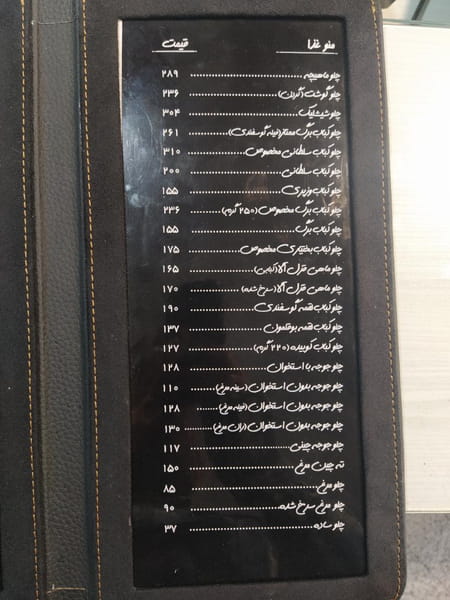 منو غذا قیمت
چلو ماهیچه ۲۸۹
چلو گوشت (گردن) ۲۳۶
چلو شیشلیک ۳۰۴
چلو کباب برگ ممتاز (فیله گوسفندی) ۲۶۱
چلو کباب سلطانی مخصوص ۳۱۰
چلو کباب سلطانی ۲۰۰
چلو کباب وزیری ۱۵۵
چلو کباب برگ مخصوص (۲۵۰ گرم) ۲۳۶
چلو کباب برگ ۱۵۵
چلو کباب بختیاری مخصوص ۱۷۵
چلو ماهی قزل آلا (کبابی) ۱۶۵
چلو ماهی قزل آلا (سرخ شده) ۱۷۰
چلو کباب لقمه گوسفندی ۱۹۰
چلو کباب لقمه بوقلمون ۱۳۷
چلو کباب کوبیده (۲۲۰ گرم) ۱۲۷
چلو جوجه با استخوان ۱۲۸
چلو جوجه بدون استخوان (سینه مرغ) ۱۱۰
چلو جوجه بدون استخوان (فیله مرغ) ۱۲۸
چلو جوجه بدون استخوان (ران مرغ) ۱۳۰
چلو جوجه چینی ۱۱۷
ته چین مرغ ۱۵۰
چلو مرغ ۸۵
چلو مرغ سرخ شده ۹۰
چلو ساده ۳۷